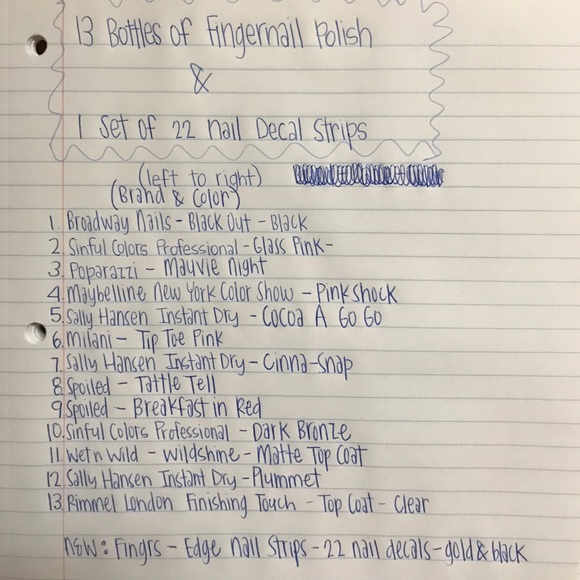 13 Bottles of Fingernail Polish
&
1 Set of 22 Nail Decal Strips
(left to right)
(Brand & Color)
1. Broadway Nails - Black Out - Black
2. Sinful Colors Professional - Glass Pink -
3. Poparazzi - Mauvie Night
4. Maybelline New York Color Show - Pink Shock
5. Sally Hansen Instant Dry - Cocoa A Go Go
6. Milani - Tip Toe Pink
7. Sally Hansen Instant Dry - Cinna-Snap
8. Spoiled - Tattle Tell
9. Spoiled - Breakfast in Red
10. Sinful Colors Professional - Dark Bronze
11. Wet n Wild - Wildshine - Matte Top Coat
12. Sally Hansen Instant Dry - Plummet
13. Rimmel London Finishing Touch - Top Coat - Clear
NEW: Fingrs - Edge Nail Strips - 22 nail decals - gold & black